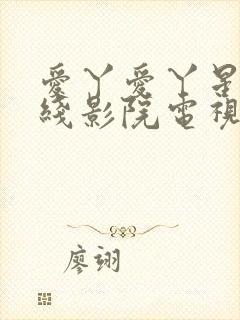 愛丫愛丫是
綫影院電視
廖翊